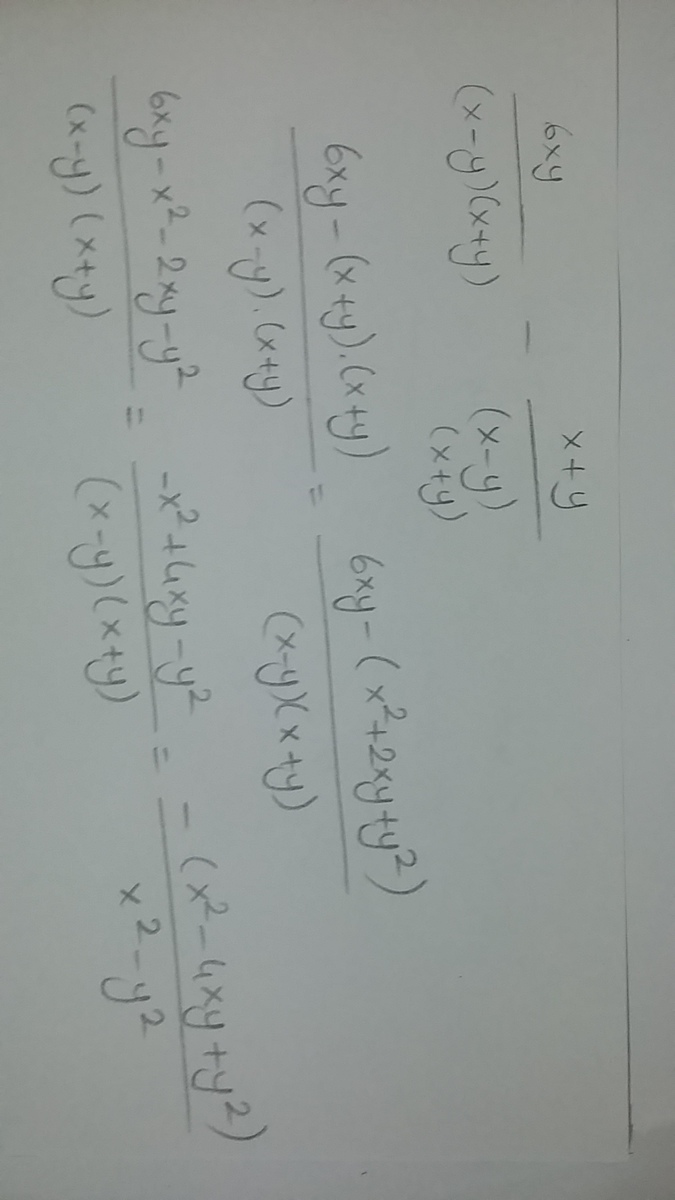 6xy/(x-y)(x+y) - x+y/(x-y)(x+y)
6xy-(x+y).(x+y)/(x-y).(x+y) = 6xy-(x²+2xy+y²)/(x-y)(x+y)
6xy-x²-2xy-y²/(x-y)(x+y) = -x²+4xy-y²/(x-y)(x+y) = -(x²-4xy+y²)/x²-y²